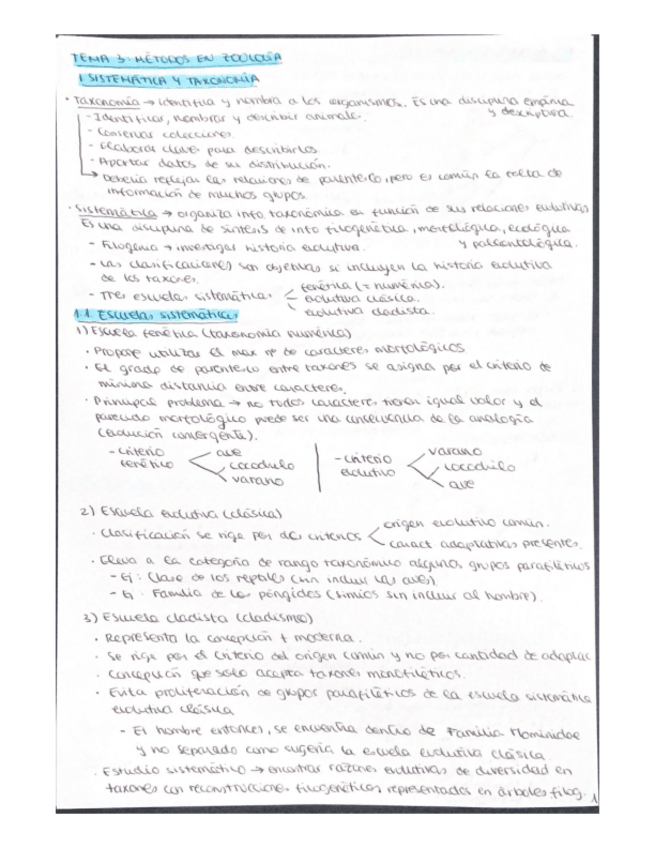 TEMA 3: MÉTODOS EN ZOOLOGÍA
1. SISTEMÁTICA Y TAXONOMÍA
· Taxonomía → identifica y nombra a los organismos. Es una disciplina empírica
y descriptiva.
- Identificar, nombrar y describir animales.
- Conservar colecciones.
- Elaborar claves para describirlos
- Aportar datos de su distribución.
→ Debería reflejar las relaciones de parentesco, pero es común la falta de
información de muchos grupos.
· Sistemática → organiza info taxonómica en función de sus relaciones evolutivas
Es una disciplina de síntesis de info filogenética, morfológica, ecológica
y paleontológica.
- Filogenia → investigar historia evolutiva.
- Las clasificaciones son objetivas si incluyen la historia evolutiva
de los taxones.
- Tres escuelas sistemáticas
fenética (= numérica).
evolutiva clásica.
evolutiva cladista.
1.1. Escuelas sistemáticas
1) Escuela fenética (taxonomía numérica)
· Propone utilizar el max nº de caracteres morfológicos
· El grado de parentesco entre taxones se asigna por el criterio de
mínima distancia entre caracteres.
· Principal problema → no todos caracteres tienen igual valor y el
parecido morfológico puede ser una consecuencia de la analogía
(evolución convergente).
- criterio fenético
ave
cocodrilo
varano
- criterio evolutivo
varano
cocodrilo
ave
2) Escuela evolutiva (clásica)
· Clasificación se rige por dos criterios
origen evolutivo común.
caract adaptativas presentes.
· Eleva a la categoría de rango taxonómico algunos grupos parafiléticos
- Ej: Clase de los reptiles (sin incluir las aves).
- Ej: Familia de los póngidos (simios sin incluir al hombre).
3) Escuela cladista (cladismo)
· Representa la concepción + moderna.
· Se rige por el criterio del origen común y no por cantidad de adaptac
· Concepción que solo acepta taxones monofiléticos.
· Evita proliferación de grupos parafiléticos de la escuela sistemática
evolutiva clásica
- El hombre entonces, se encuentra dentro de Familia Hominidae
y no separado como sugería la escuela evolutiva clásica.
· Estudio sistemático → encontrar razones evolutivas de diversidad en
taxones con reconstrucciones filogenéticas representados en árboles filog.
1